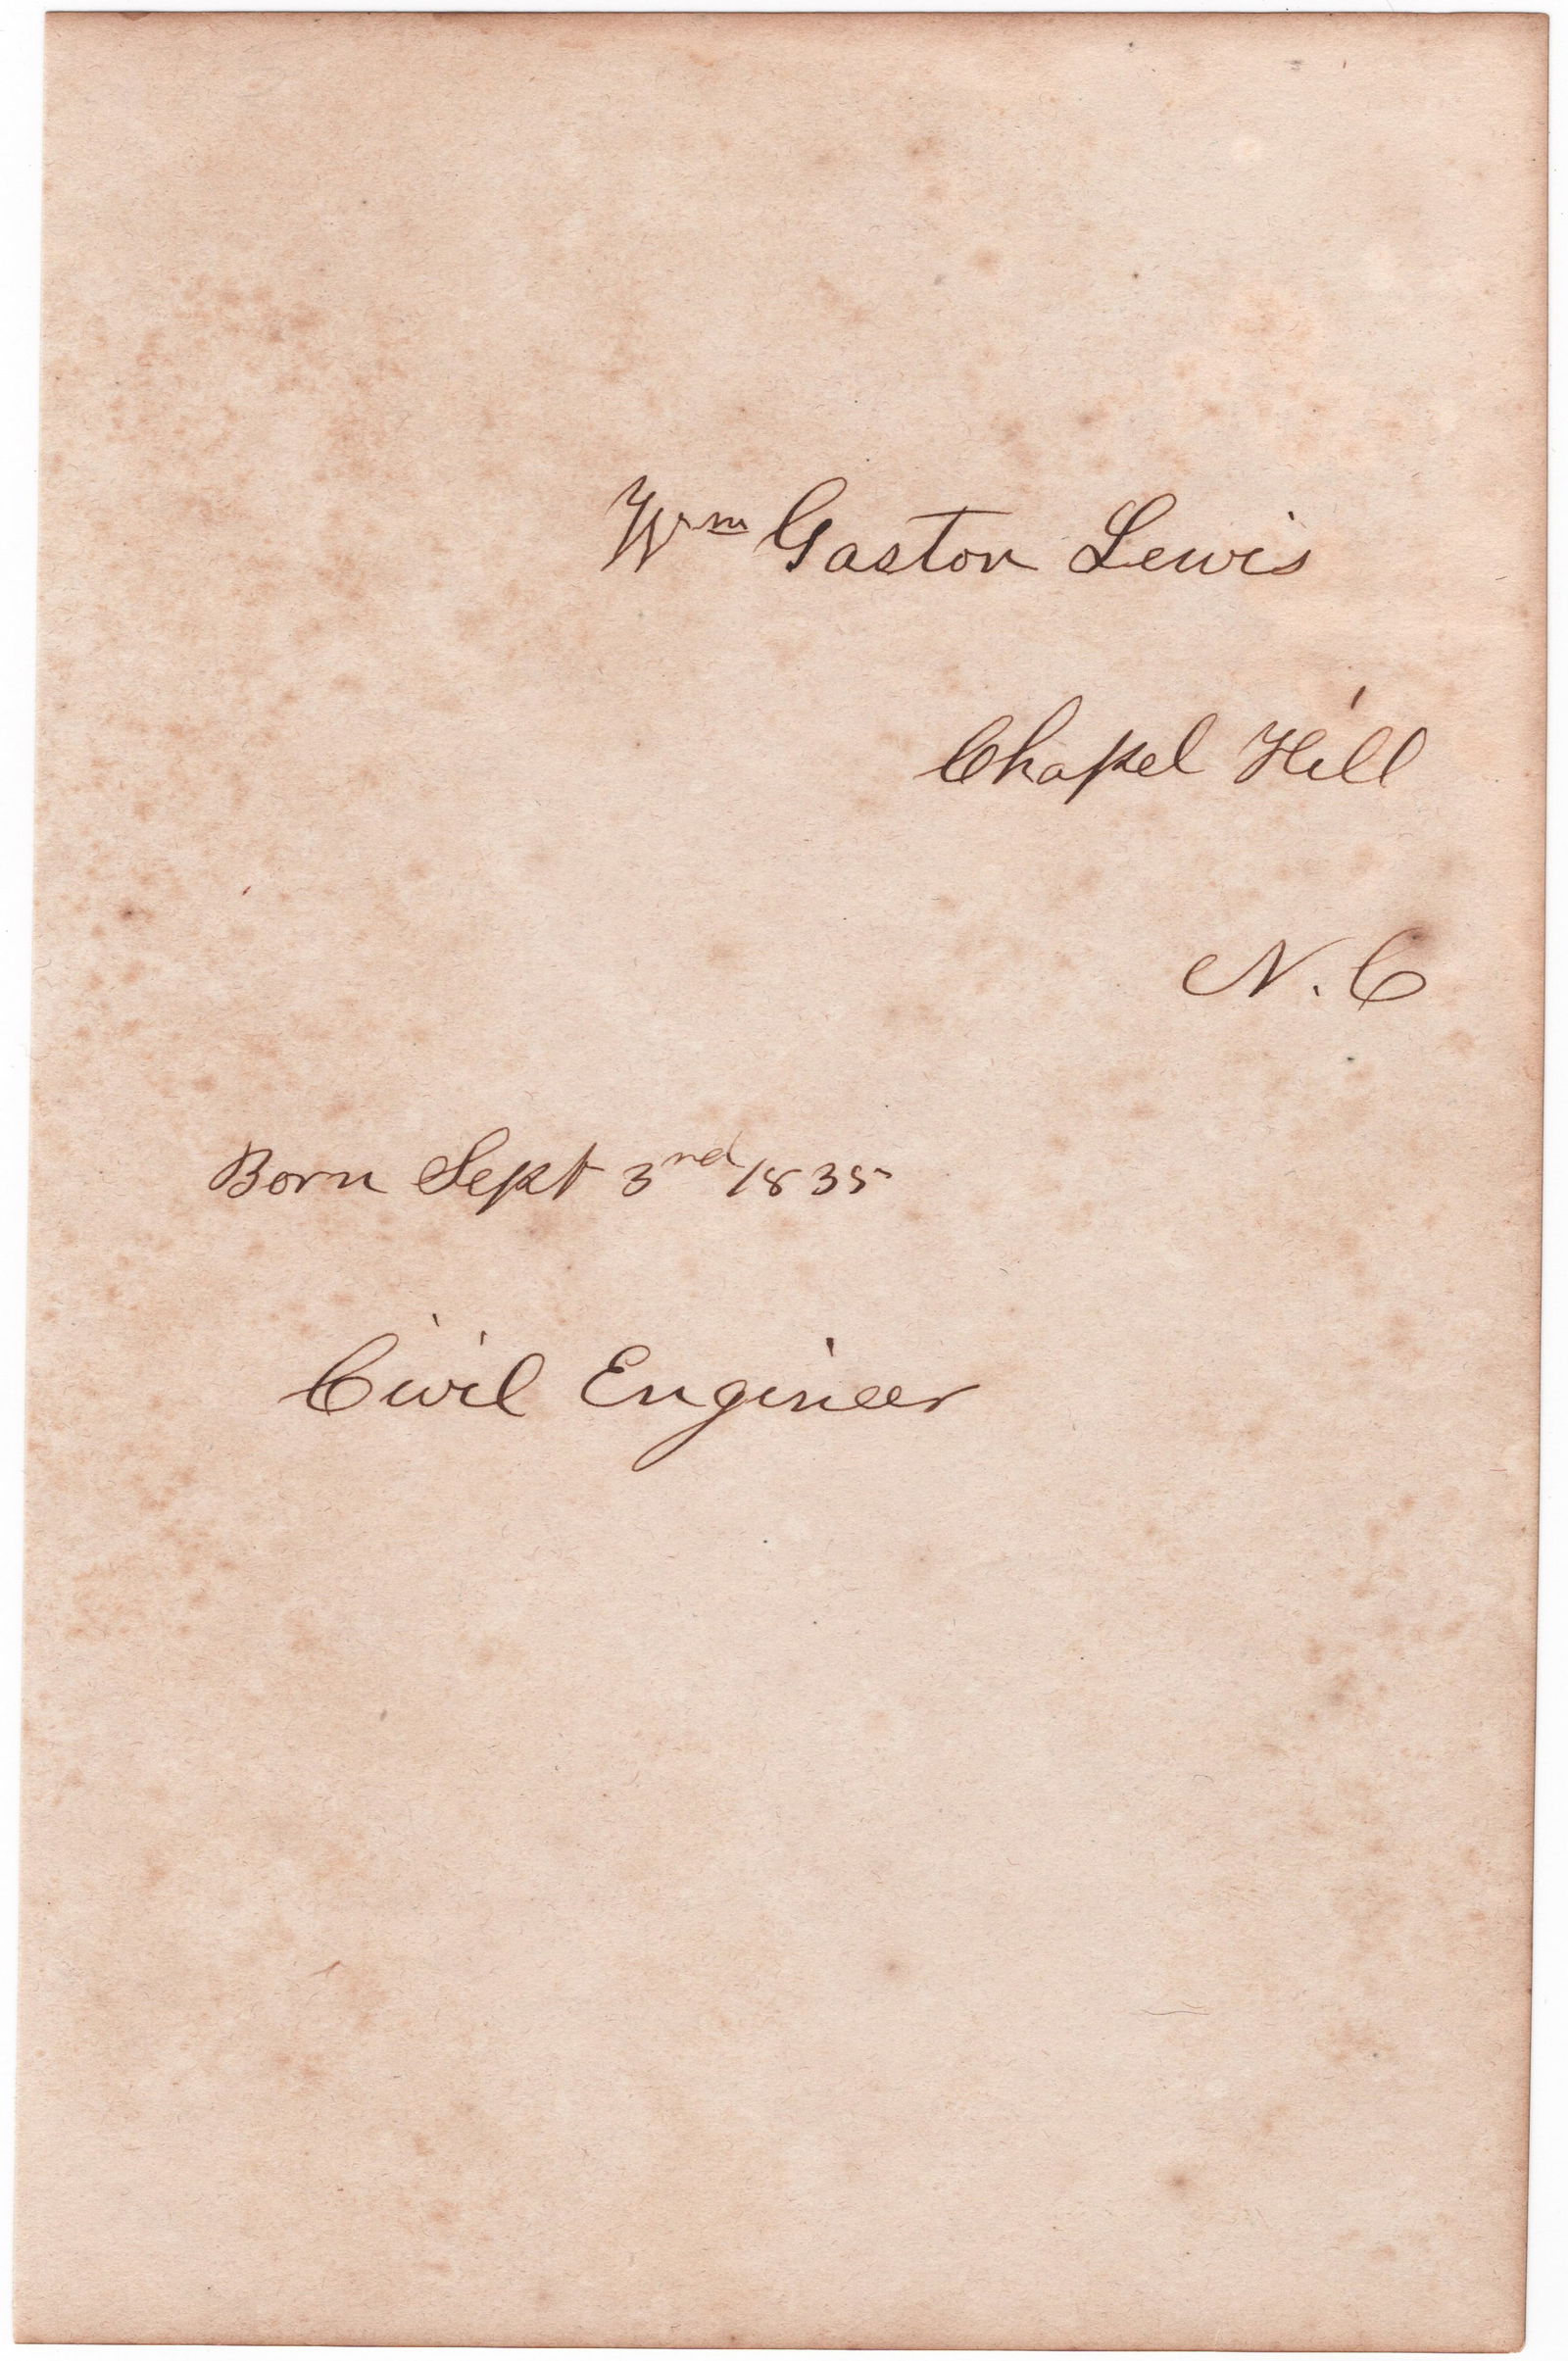 Wm Gaston Lewis
Chapel Hill
N. C
Born Sept 3nd 1835
Civil Engineer